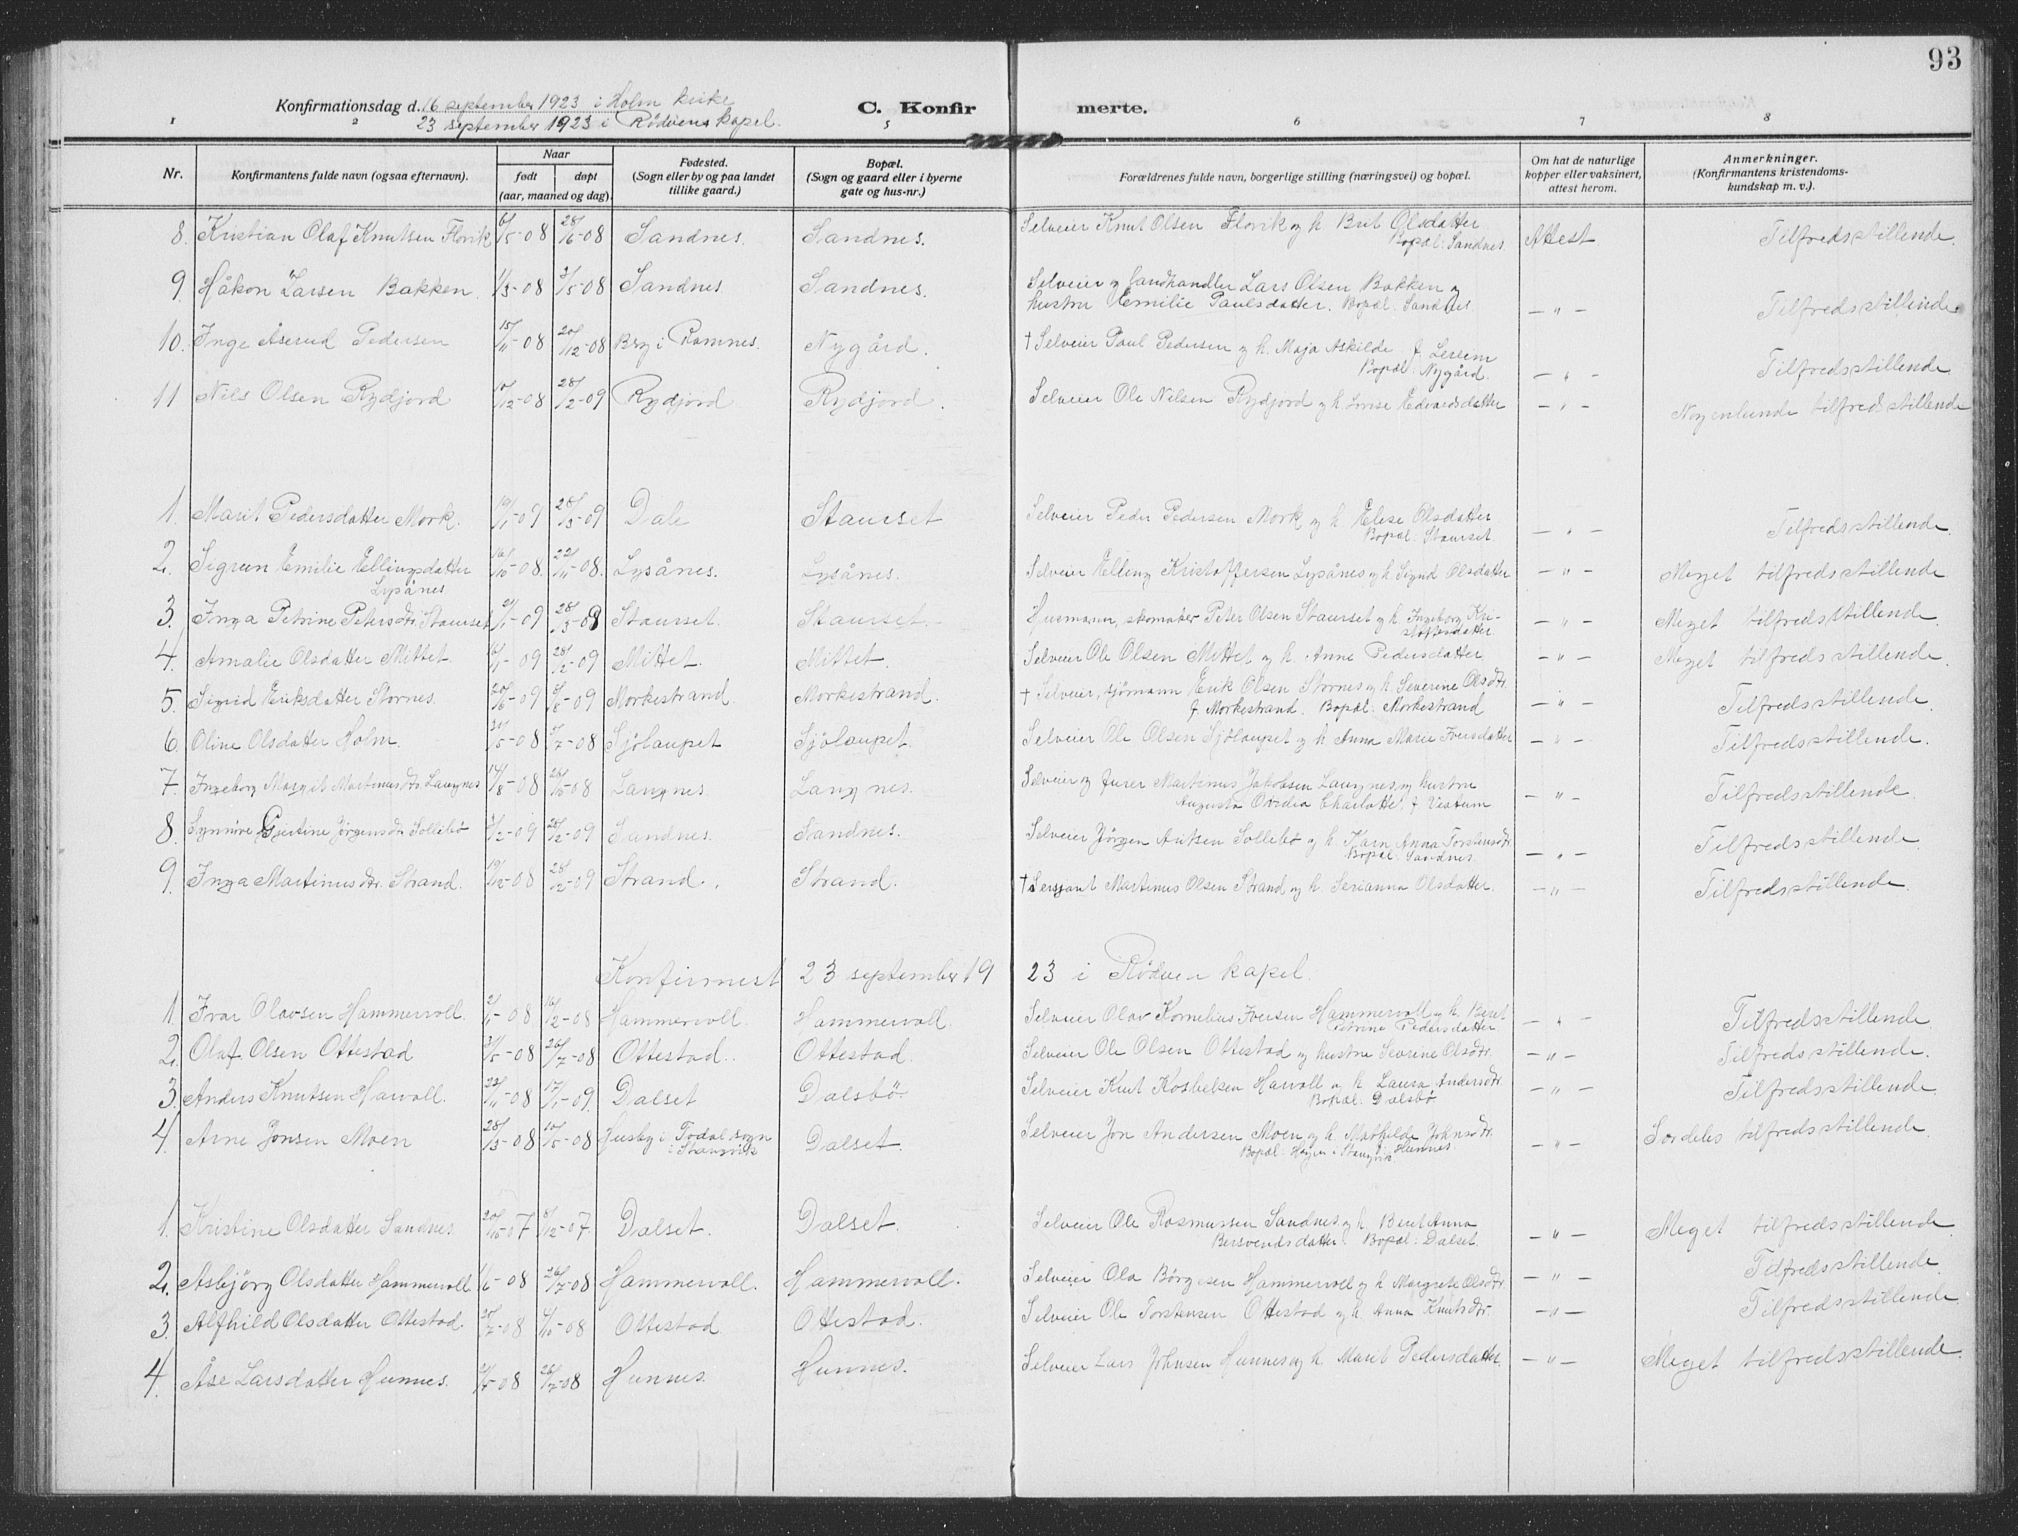 93
Konfirmationsdag d. 16 september 1923 i Holm kirke
23 september 1923 i Rödvens kapel.
C. Konfirmerte.
1 2 5 6 7 8
Nr. Konfirmantens fulde navn (ogsaa efternavn). Naar født døpt (aar, maaned og dag). Fødested. (Sogn eller by og paa landet tillike gaard.) Bopæl. (Sogn og gaard eller i byerne gate og hus-nr.) Forældrenes fulde navn, borgerlige stilling (næringsvei) og bopæl. Om hat de naturlige kopper eller vaksinert, attest herom. Anmerkninger. (Konfirmantens kristendomskundskap m. v.).
8. Kristian Olaf Knutsen Flovik 6/5-08 28/6-08 Sandnes. Sandnes. Selveier Knut Olsen Flovik og h. Brit Olsdatter Attest Tilfredsstillende.
Bopæl: Sandnes.
9. Håkon Larsen Bakken. 1/3-08 3/5-08 Sandnes. Sandnes. Selveier og landhandler Lars Olsen Bakken og
hustru Emilie Paulsdatter. Bopæl: Sandnes. — " — Tilfredsstillende
10. Inge Åserud Pedersen 15/11-08 20/12-08 Berg i Ramnes. Nygård. † Selveier Paul Pedersen og h. Maja Askilde f. Lereim
Bopæl: Nygård. — " — Tilfredsstillende
11 Nils Olsen Rydjord 10/12-08 28/2-09 Rydjord Rydjord. Selveier Ole Nilsen Rydjord og h. Lovise Edvardsdatter — " — Nogenlunde tilfredsstillende
1. Marit Pedersdatter Mork. 19/1-09 28/3-09 Dale Staurset Selveier Peder Pedersen Mork og h. Elise Olsdatter
Bopæl: Staurset. — " — Tilfredsstillende
2. Sigrun Emilie Ellingsdatter 16/10-08. 22/11-08. Lysånes. Lysånes. Selveier Elling Kristoffersen Lysånes og h. Sigrid Olsdatter — " — Meget tilfredsstillende
Lysånes
3. Inga Petrine Petersdtr. Staurset 21/1-09 28/3-09 Staurset. Staurset. Husmann, skomaker Peter Olsen Staurset og h. Ingeborg Kri- — " — Meget tilfredsstillende.
stoffersdatter
4. Amalie Olsdatter Mittet. 16/1-09 28/2-09 Mittet. Mittet. Selveier Ole Olsen Mittet og h. Anne Pedersdatter — " — Meget tilfredsstillende.
5. Sigrid Eriksdatter Stornes. 20/6-09 8/8-09 Morkestrand Morkestrand. † Selveier, sjömann Erik Olsen Stornes og h. Severine Olsdtr.
f. Morkestrand. Bopæl: Morkestrand — " — Tilfredsstillende.
6. Oline Olsdatter Holm. 31/5-08 5/7-08 Sjölaupet Sjölaupet. Selveier Ole Olsen Sjölaupet og h. Anna Marie Iversdatter — " — Tilfredsstillende.
7. Ingeborg Margit Martinusdtr. Langnes 14/8-08 Langnes. Langnes. Selveier og furer Martinus Jakobsen Langnes og hustru
Augusta Ovedia Charlotte f. Vestum — " — Tilfredsstillende.
8. Synnöve Gjertine Jörgensdtr. Sollebö 3/2-09 28/2-09 Sandnes. Sandnes. Selveier Jörgen Sollebö og h. Karn Anna Torstensdtr.
Bopæl: Sandnes. — " — Tilfredsstillende.
9. Inga Martinusdtr. Strand. 19/12-08 28/2-09 Strand. Strand. † Sersjant Martinus Olsen Strand og h. Serianna Olsdatter. — " — Tilfredsstillende.
Konfirmert 23 september 1923 i Rödven kapel.
1. Ivar Olavsen Hammervoll. 2/1-08 16/2-08 Hammervoll. Hammervoll. Selveier Olav Kornelius Iversen Hammervoll og h. Beret
Petrine Pedersdatter. — " — Tilfredsstillende.
2. Olaf Olsen Ottestad 31/5-08 26/7-08 Ottestad. Ottestad. Selveier Ole Olsen Ottestad og hustru Severine Olsdtr. — " — Tilfredsstillende.
3. Anders Knutsen Harvoll. 22/11-08 17/1-09. Dalset Dalsbö. Selveier Knut Harvoll og h. Laura Andersdtr.
Bopæl: Dalsbö — " — Tilfredsstillende
4. Arne Jonsen Moen 28/3-08 10/5-08 Husby i Todal sogn i Stangvik Dalset. Selveier Jon Andersen Moen og h. Mathilde Johnsdtr.
f. Hunnes. Bopæl: i Stangvik — " — Særdeles tilfredsstillende.
1. Kristine Olsdatter Sandnes. 20/10-07 8/12-07. Dalset. Dalset. Selveier Ole Rasmussen Sandnes og h. Berit Anna
Bersvendsdatter. Bopæl: Dalset. — " — Meget tilfredsstillende
2. Asbjörg Olsdatter Hammervoll. 1/6-08 26/7-08 Hammervoll. Hammervoll. Selveier Ola Börgesen Hammervoll og h. Margrete Olsdtr. — " — Tilfredsstillende.
3. Alfhild Olsdatter Ottestad. 25/7-08 4/10-08 Ottestad Ottestad. Selveier Ole Torstensen Ottestad og h. Anna Knutsdtr. — " — Tilfredsstillende.
4. Åse Larsdatter Hunnes. 21/5-08 26/7-08 Hunnes. Hunnes. Selveier Lars Johnsen Hunnes og h. Marit Pedersdatter. — " — Meget tilfredsstillende.